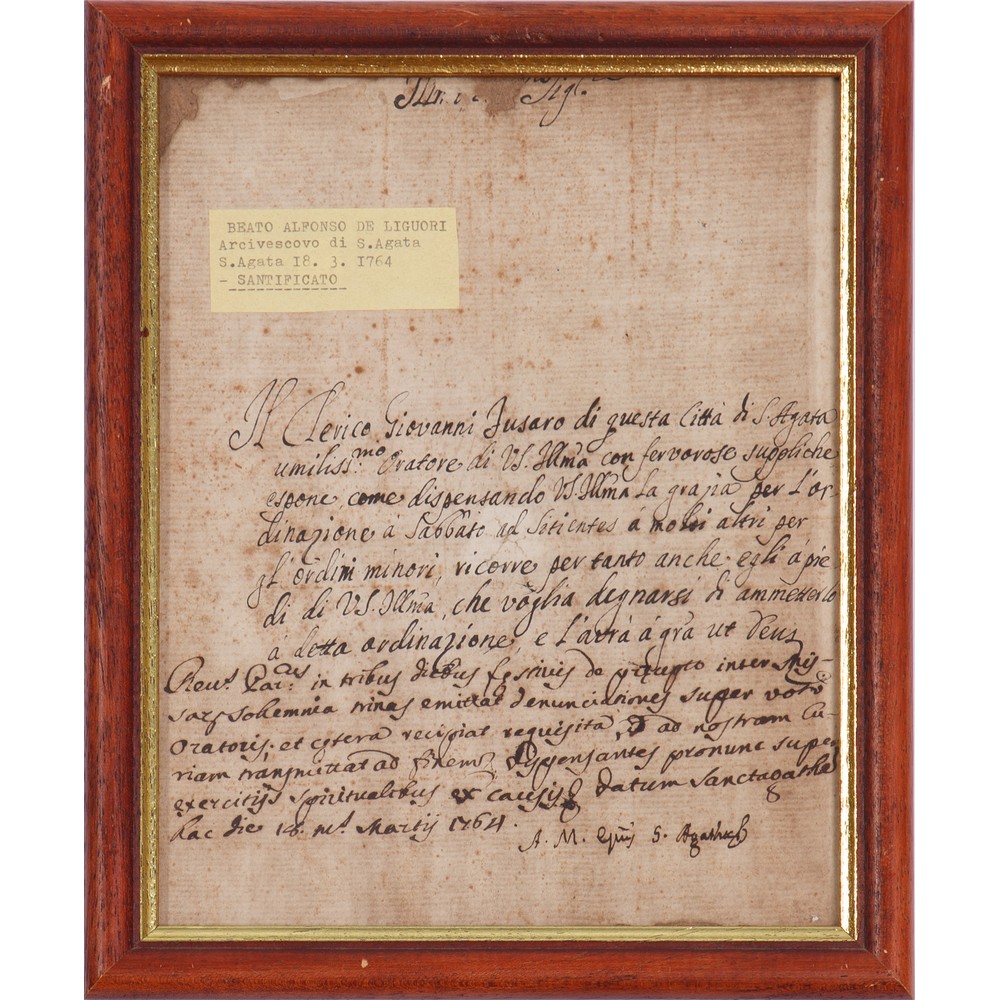 BEATO ALFONSO DE LIGUORI
Arcivescovo di S.Agata
S.Agata 18. 3. 1764
- SANTIFICATO
Il Clerico Giovanni Fusaro di questa Città di S. Agata
umiliss.mo Oratore di V.S. Illma con fervorose suppliche
espone, come dispensando V.S. Illma la grazia per l'or-
dinazione à Sabbato ad Sitientes à molti altri per
gl'ordini minori, ricorre per tanto anche egli à pie
di di V.S. Illma, che voglia degnarsi di ammetterlo
à detta ordinazione, e l'avrà à gra ut Deus
Revs. in tribus diebus festivis de precepto inter Mis-
sarum solemnia trinas emittat denunciationes super voto
Oratoris, et cetera recipiat requisita, et ad nostram Cu-
riam transmittat ad finem dispensantes pro nunc super
exercitijs spiritualibus ex causis datum Sanctagathe
hac die 18. ms. Martij 1764.
A. M. Epus S.